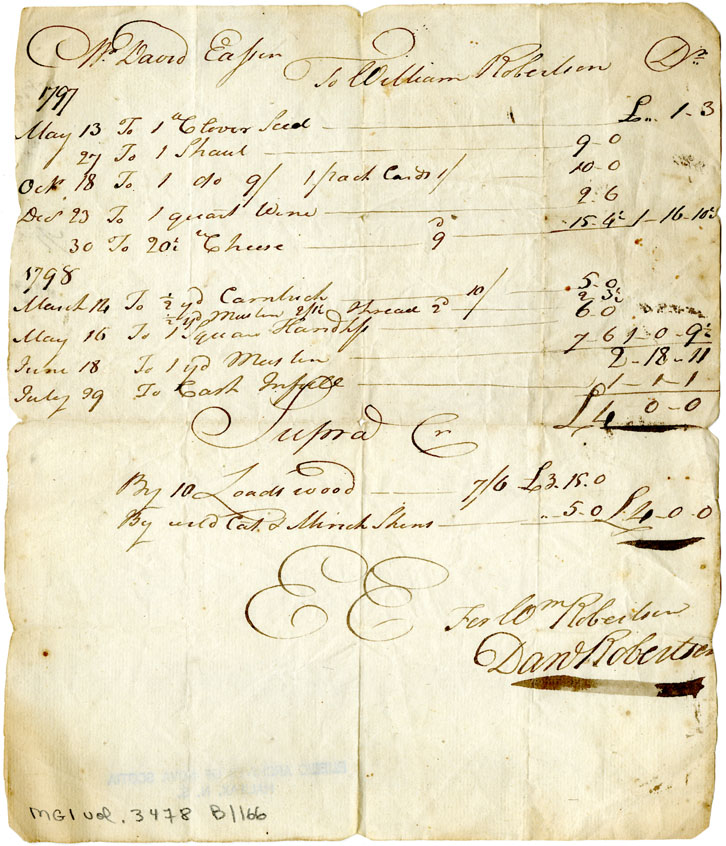 Mr. David Eassen To William Robertson Dr.
1797
May 13 To 1 lb Clover Seed £.. 1-3
27 To 1 Shaul 9-0
Octr 18 To 1 do 9/ 1 pack Cards 1/ 10-0
Decr 23 To 1 quart Wine 2-6
30 To 20½ lb Cheese 9d 15-4½ 1-16-10½
1798
March 14 To ½ yd Cambrick 10/ 5-0
½ yd Muslin thread 2d 2-3½
May 16 To 1 Square Handkff 6-0
June 18 To 1 yd Muslin 7-6 1-0-9½
2-18-11
July 29 To Cash In full 1-1-1
£4 0-0
Supra Cr
By 10 Loads wood 7/6 £3-15-0
By wild Cat & Minck Skins ..5-0 £4-0-0
EE
For Wm Robertson
Danl Robertson
PUBLIC ARCHIVES OF NOVA SCOTIA
HALIFAX, N. S.
MG1 vol. 3478 B1166